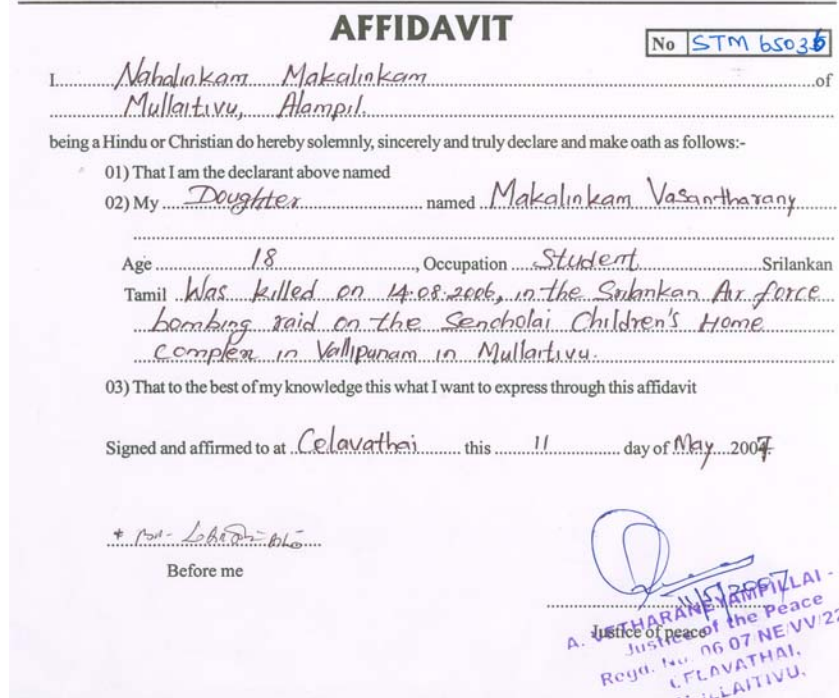 AFFIDAVIT
No STM 65036
I Nahalinkam Makalinkam of
Mullaitivu, Alampil.
being a Hindu or Christian do hereby solemnly, sincerely and truly declare and make oath as follows:-
01) That I am the declarant above named
02) My Doughter named Makalinkam Vasantharany
Age 18, Occupation Student Srilankan
Tamil Was killed on 14.08.2006, in the Srilankan Air force
bombing raid on the Sencholai Children's Home
Complex in Vallipunam in Mullaitivu.
03) That to the best of my knowledge this what I want to express through this affidavit
Signed and affirmed to at Celavathai this 11 day of May 2007
Before me
11/5/2007
Justice of peace
A. VETHARANEYAMPILLAI -
Justice of the Peace
Regd. No. 06 07 NE/VV/22